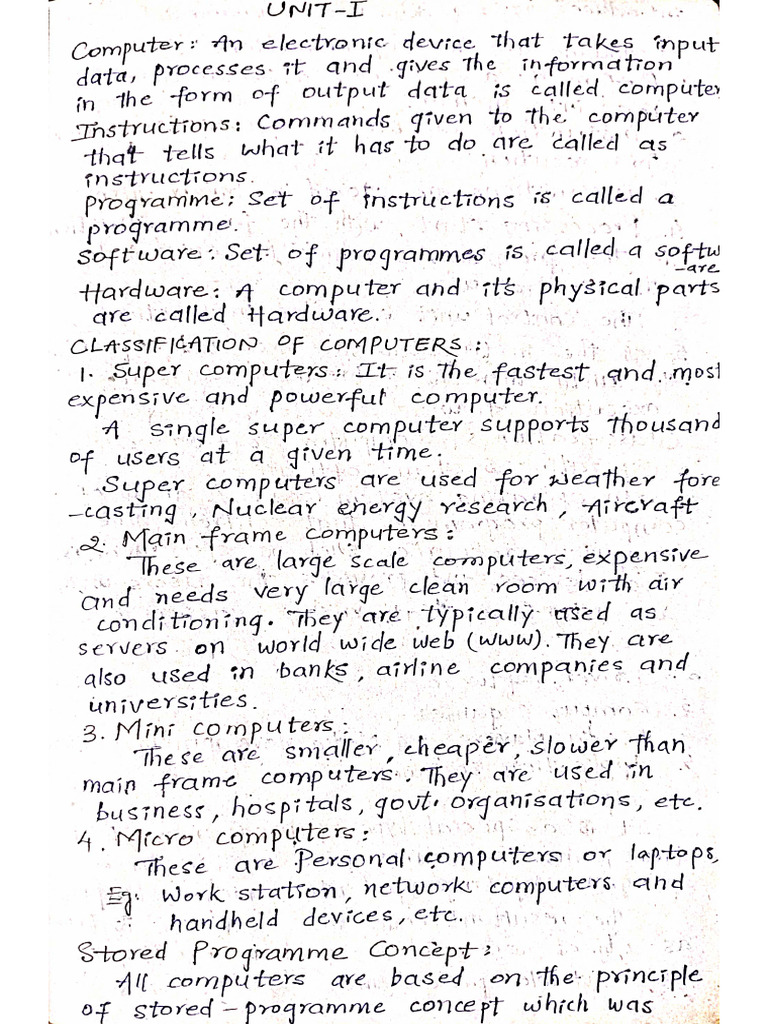 UNIT-I
Computer: An electronic device that takes input
data, processes it and gives the information
in the form of output data is called computer
Instructions: Commands given to the computer
that tells what it has to do are called as
instructions.
Programme: Set of instructions is called a
programme.
Software: Set of programmes is called a softw
-are
Hardware: A computer and it's physical parts
are called Hardware.
CLASSIFICATION OF COMPUTERS:
1. Super computers: It is the fastest and most
expensive and powerful computer.
A single super computer supports thousand
of users at a given time.
Super computers are used for weather fore
-casting, Nuclear energy research, Aircraft
2. Main frame computers:
These are large scale computers, expensive
and needs very large clean room with air
conditioning. They are typically used as
servers on world wide web (www). They are
also used in banks, airline companies and
universities.
3. Mini computers:
These are smaller, cheaper, slower than
main frame computers. They are used in
business, hospitals, govt. organisations, etc.
4. Micro computers:
These are Personal computers or laptops,
Eg: Work station, network computers and
handheld devices, etc.
Stored Programme Concept:
All computers are based on the principle
of stored-programme concept which was